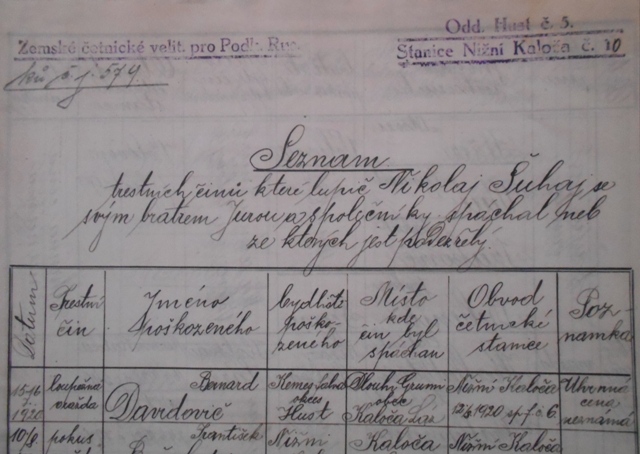 Zemské četnické velit. pro Podk. Rus.
Odd. Hust č. 5.
Stanice Nižní Kaloča č. 10
č. j. 579
Seznam
trestných činů které lupič Nikolaj Šuhaj se
svým bratrem Jurou a společníky spáchal neb
ze kterých jest podezřelý.
Datum
Trestní
čin
Jméno
poškozeného
bydliště
poško-
zeného
Místo
kde
čin byl
spáchán
Obvod
četnické
stanice
Poz-
námka
15-16
1920
loupežná
vražda
Bernard
Davidovič
okres
Hust
Dlouhý Gruni
obec
Kaloča Láz
Nižní Kaloča
12/6 1920
Uhrnná
cena
neznámá
10/8.
pokus.
František
Nižní
Kaloča
Nižní Kaloča